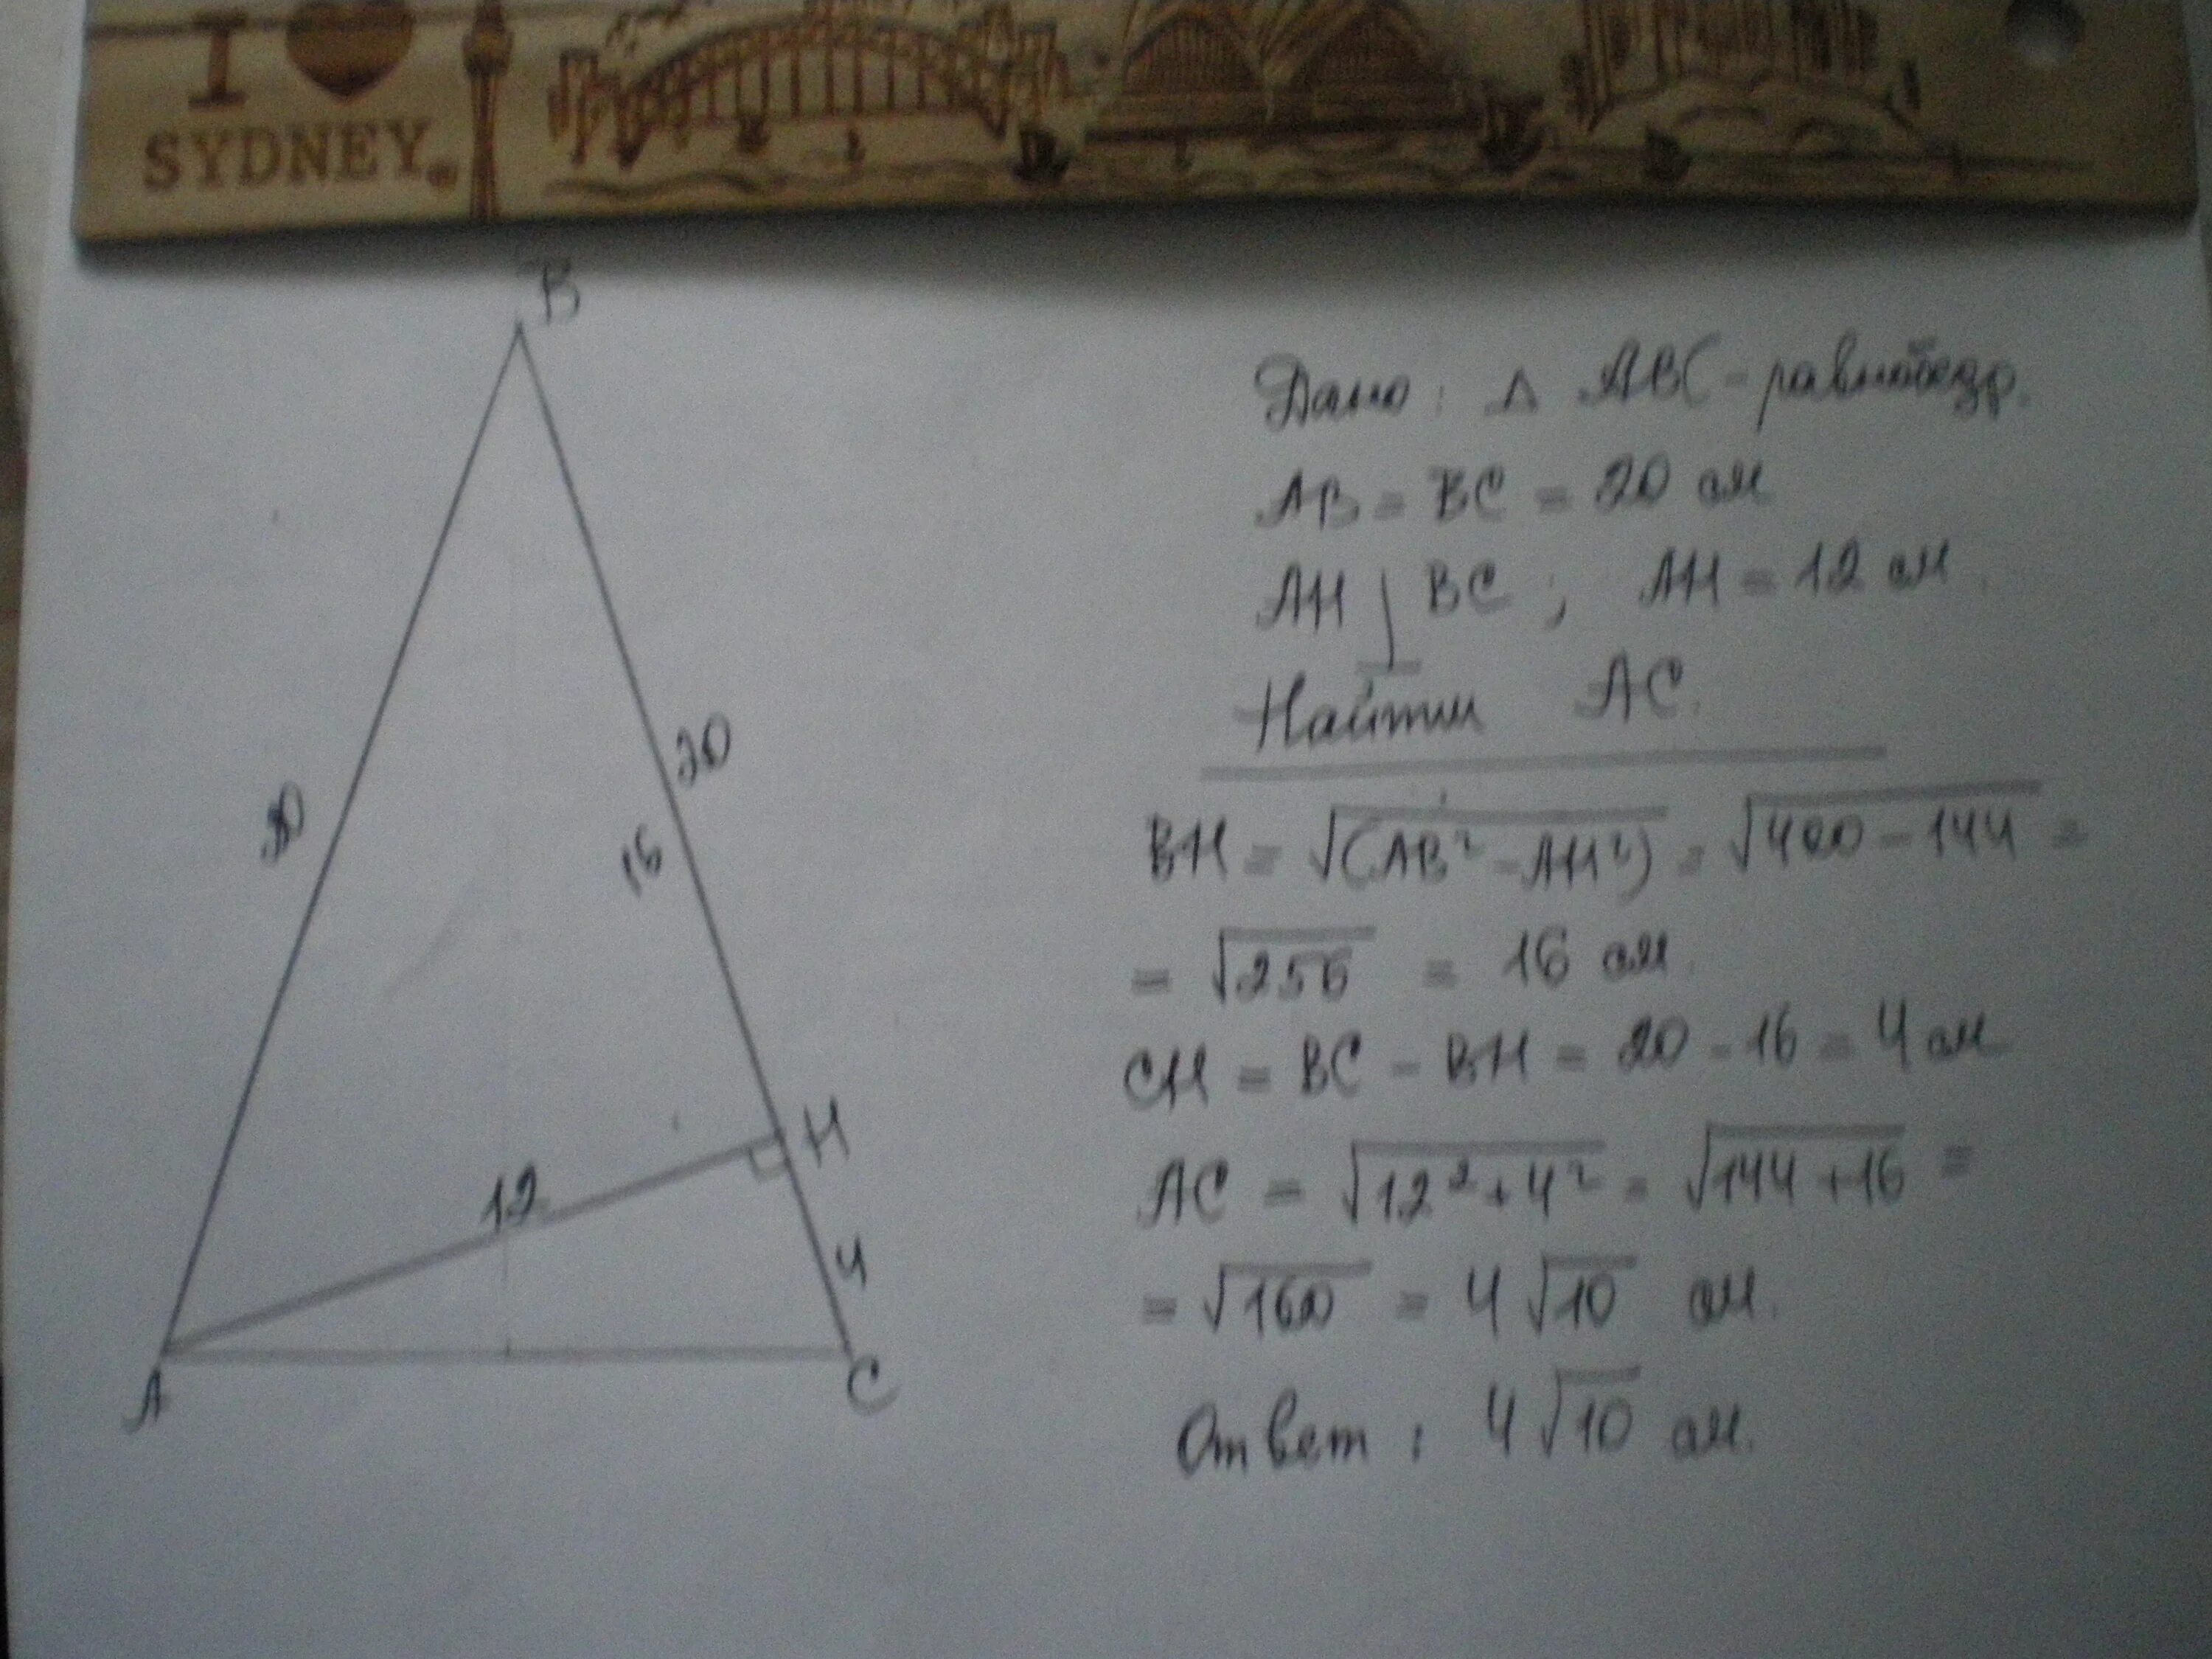 I ♥
SYDNEY
B
20
20
16
H
12
4
A
C
Дано: △ ABC - равнобедр.
AB = BC = 20 см
AH ⊥ BC ; AH = 12 см
Найти AC.
BH = √(AB² - AH²) = √400 - 144 =
= √256 = 16 см.
CH = BC - BH = 20 - 16 = 4 см
AC = √12² + 4² = √144 + 16 =
= √160 = 4√10 см.
Ответ: 4√10 см.